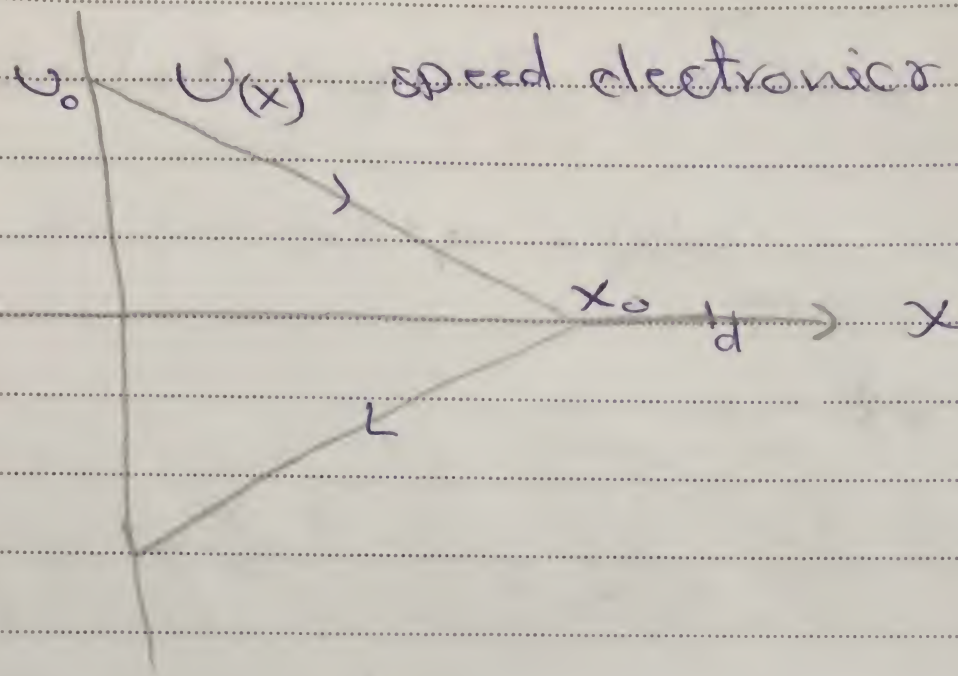 υ₀ υ(x) speed electronics
x₀
d x